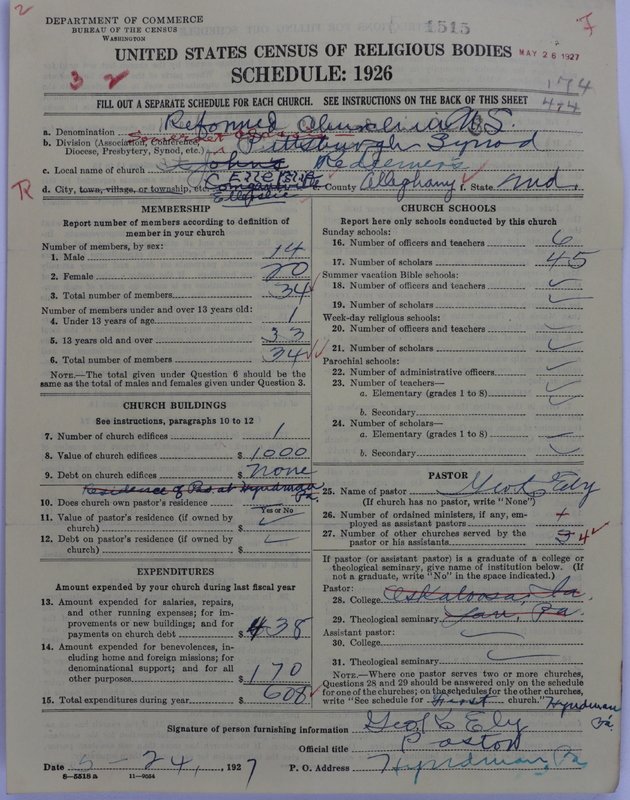 2
DEPARTMENT OF COMMERCE
BUREAU OF THE CENSUS
WASHINGTON
1515
UNITED STATES CENSUS OF RELIGIOUS BODIES
MAY 26 1927
3 2
SCHEDULE: 1926
174
474
FILL OUT A SEPARATE SCHEDULE FOR EACH CHURCH. SEE INSTRUCTIONS ON THE BACK OF THIS SHEET
a. Denomination Reformed Church in U.S.
b. Division (Association, Conference, Diocese, Presbytery, Synod, etc.) Pittsburgh Synod
c. Local name of church St Johns Redeemers
d. City, town, village, or township, etc. Ellerslie County Alleghany f. State Md
R
MEMBERSHIP
Report number of members according to definition of
member in your church
Number of members, by sex:
1. Male 14
2. Female 20
3. Total number of members 34
Number of members under and over 13 years old:
4. Under 13 years of age 1
5. 13 years old and over 33
6. Total number of members 34
NOTE.—The total given under Question 6 should be the
same as the total of males and females given under Question 3.
CHURCH BUILDINGS
See instructions, paragraphs 10 to 12
7. Number of church edifices 1
8. Value of church edifices $ 1000
9. Debt on church edifices $ none
Residence of Pas at Hyndman Pa.
10. Does church own pastor's residence
Yes or No
11. Value of pastor's residence (if owned by
church) $
12. Debt on pastor's residence (if owned by
church) $
EXPENDITURES
Amount expended by your church during last fiscal year
13. Amount expended for salaries, repairs,
and other running expenses; for im-
provements or new buildings; and for
payments on church debt $ 438
14. Amount expended for benevolences, in-
cluding home and foreign missions; for
denominational support; and for all
other purposes $ 170
15. Total expenditures during year $ 608
CHURCH SCHOOLS
Report here only schools conducted by this church
Sunday schools:
16. Number of officers and teachers 6
17. Number of scholars 45
Summer vacation Bible schools:
18. Number of officers and teachers
19. Number of scholars
Week-day religious schools:
20. Number of officers and teachers
21. Number of scholars
Parochial schools:
22. Number of administrative officers
23. Number of teachers—
a. Elementary (grades 1 to 8)
b. Secondary
24. Number of scholars—
a. Elementary (grades 1 to 8)
b. Secondary
PASTOR
25. Name of pastor Geo L Ely
(If church has no pastor, write "None")
26. Number of ordained ministers, if any, em-
ployed as assistant pastors
27. Number of other churches served by the
pastor or his assistants 4
If pastor (or assistant pastor) is a graduate of a college or
theological seminary, give name of institution below. (If
not a graduate, write "No" in the space indicated.)
Pastor:
28. College Oskaloosa, Ia.
29. Theological seminary Lan, Pa.
Assistant pastor:
30. College
31. Theological seminary
NOTE.—Where one pastor serves two or more churches,
Questions 28 and 29 should be answered only on the schedule
for one of the churches; on the schedules for the other churches,
write "See schedule for First church." Hyndman Pa.
Signature of person furnishing information Geo L Ely
Official title Pastor
Date 5-24, 1927 P. O. Address Hyndman, Pa
8—5518 a 11—9034